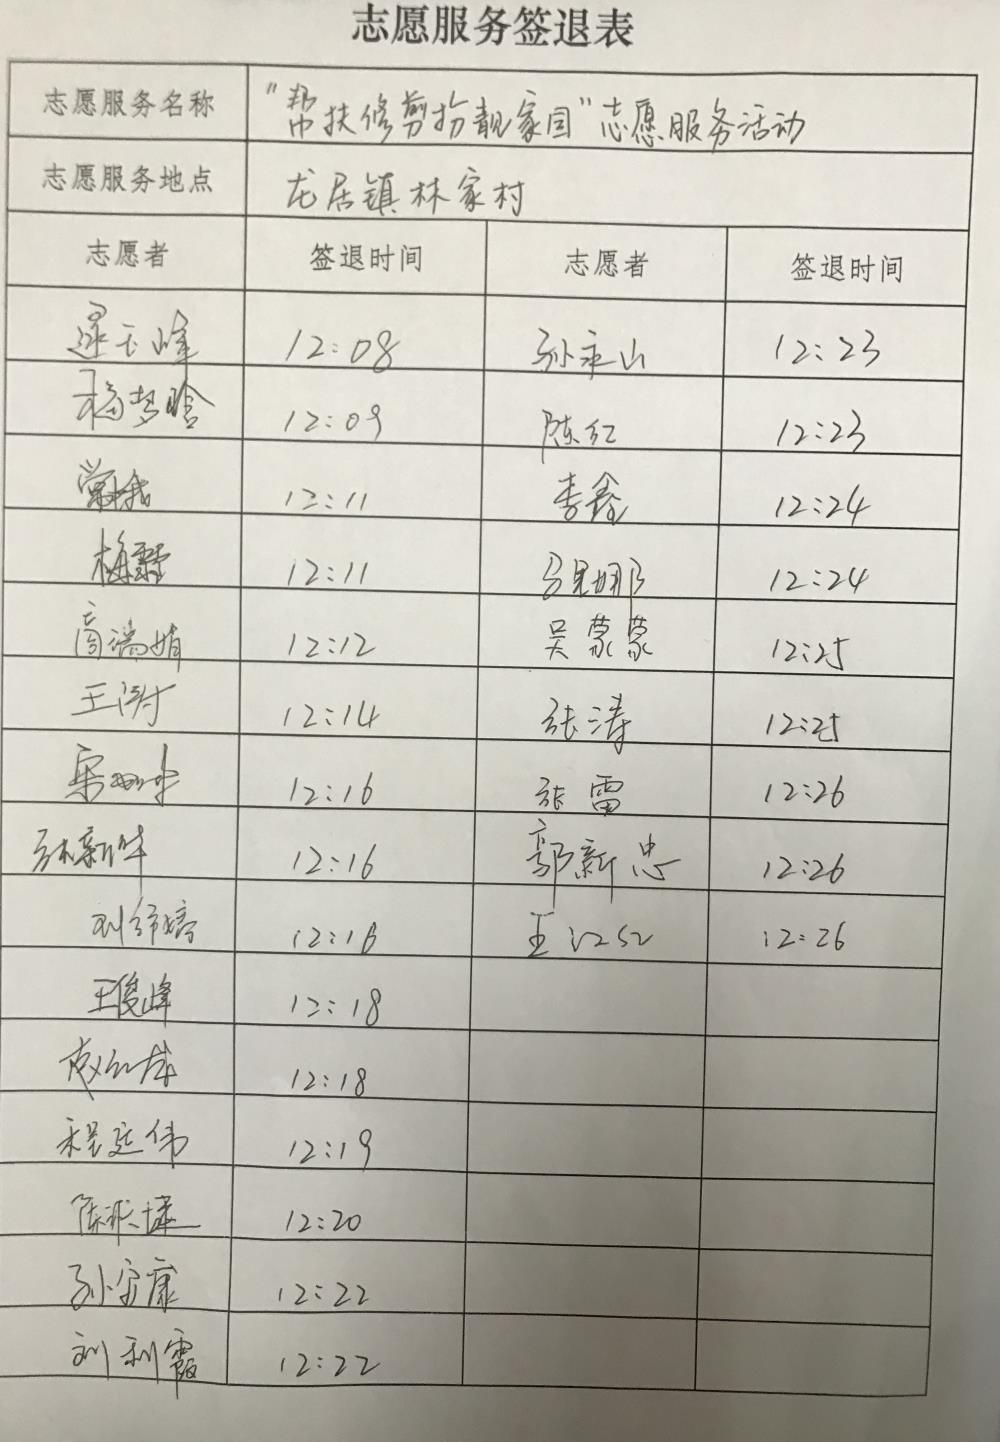 志愿服务签退表
志愿服务名称 "帮扶修剪扮靓家园"志愿服务活动
志愿服务地点 龙居镇林家村
志愿者 签退时间 志愿者 签退时间
玉峰 12:08 孙永山 12:23
12:09 陈红 12:23
12:11 李鑫 12:24
梅霖 12:11 娜 12:24
商瑞娟 12:12 吴蒙蒙 12:25
王涛 12:14 张涛 12:25
12:16 张雷 12:26
孙新华 12:16 郭新忠 12:26
刘 12:16 王江红 12:26
王俊峰 12:18
12:18
程延伟 12:19
陈 12:20
孙守康 12:22
刘利霞 12:22